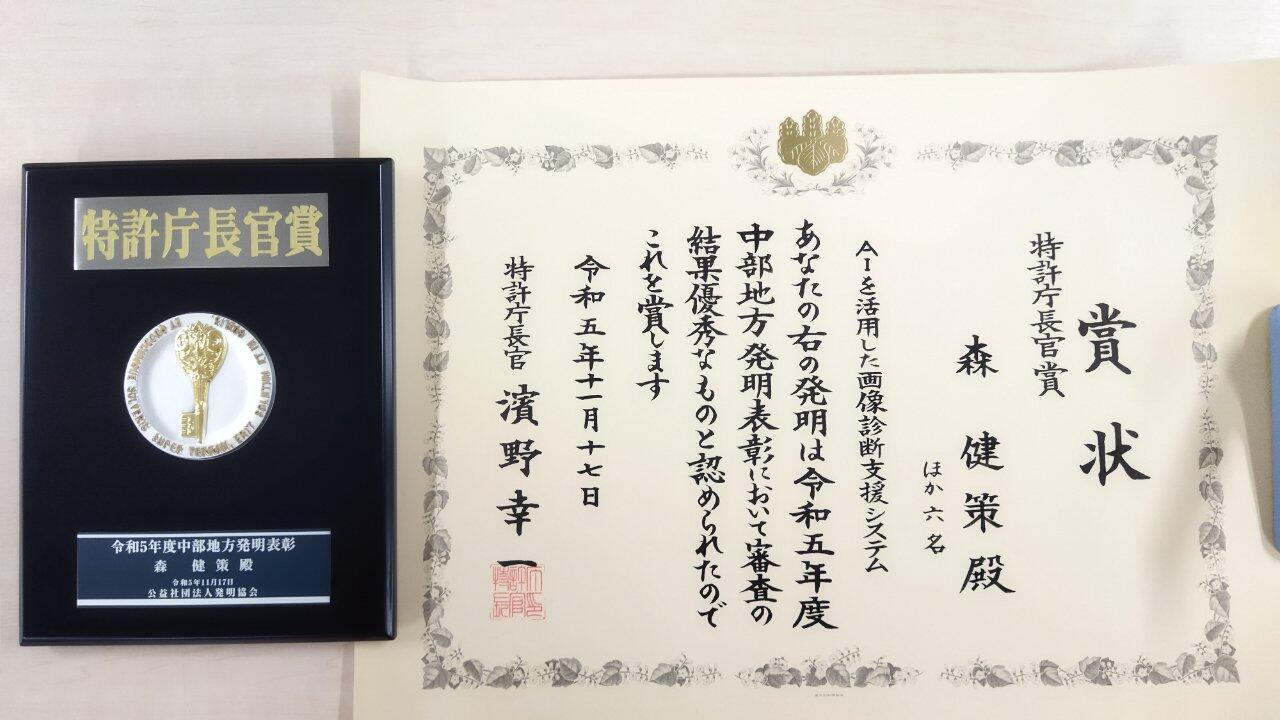 特許庁長官賞
令和5年度中部地方発明表彰
森 健策 殿
令和5年11月17日
公益社団法人発明協会
賞状
特許庁長官賞
森 健策 殿
ほか六名
AIを活用した画像診断支援システム
あなたの右の発明は令和五年度
中部地方発明表彰において審査の
結果優秀なものと認められたので
これを賞します
令和五年十一月十七日
特許庁長官 濱野幸一